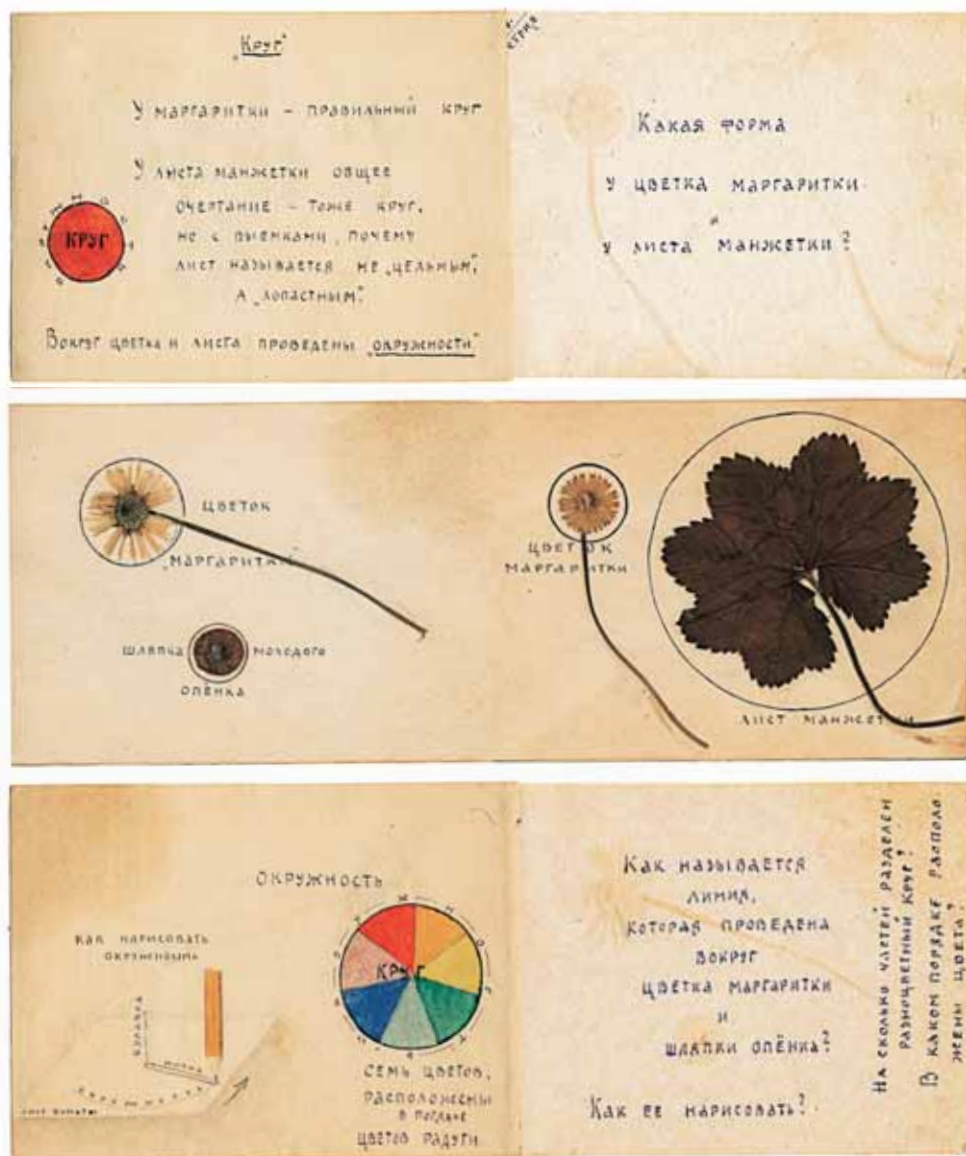 „Круг“
У маргаритки – правильный круг
У листа манжетки общее
очертание – тоже круг,
но с выемками, почему
лист называется не „цельным“,
а „лопастным“.
КРУГ
Вокруг цветка и листа проведены „окружности“
Какая форма
у цветка маргаритки
и
у листа манжетки?
цветок
„маргаритки“
шляпка молодого
опёнка
цветок
маргаритки
лист манжетки
окружность
как нарисовать
окружность
булавка
нитка
лист бумаги
окружность
КРУГ
семь цветов,
расположены
в порядке
цветов радуги
Как называется
линия,
которая проведена
вокруг
цветка маргаритки
и
шляпки опёнка?
Как ее нарисовать?
На сколько частей разделен
разноцветный круг?
В каком порядке располо
жены цвета?